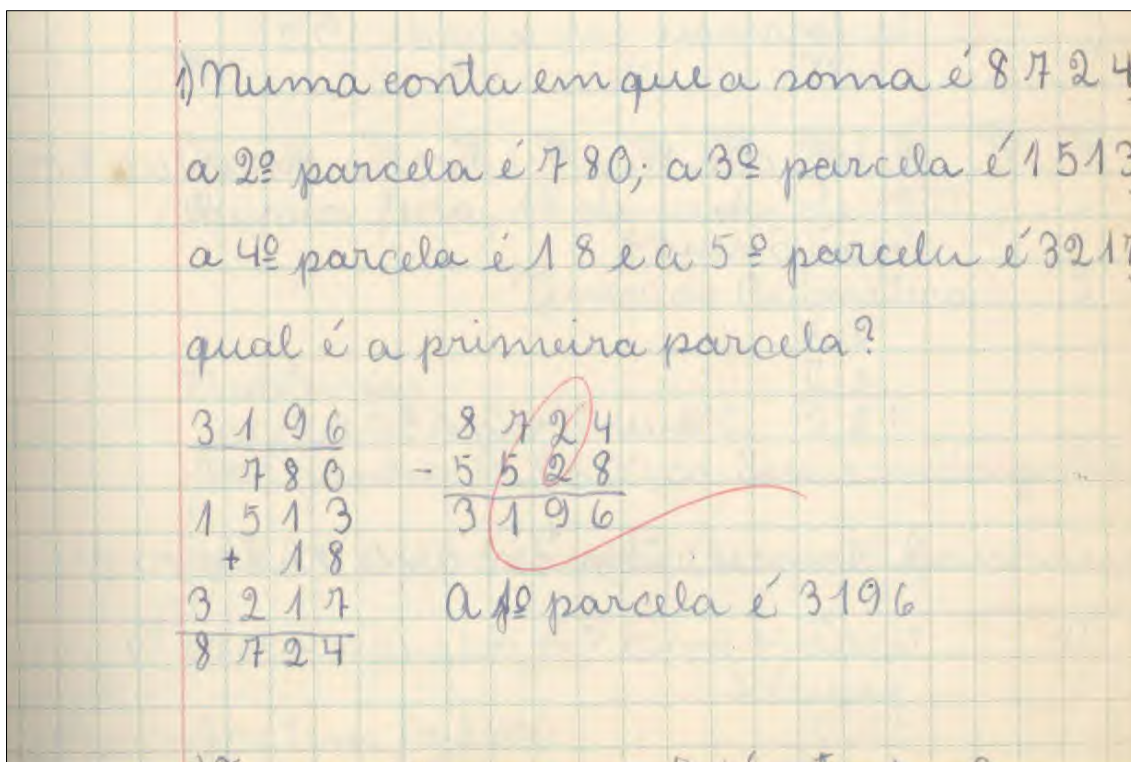 1) Numa conta em que a soma é 8724
a 2º parcela é 780; a 3º parcela é 1513
a 4º parcela é 18 e a 5º parcela é 3217
qual é a primeira parcela?
3196
780
1513
+ 18
3217
8724
8724
- 5528
3196
A 1º parcela é 3196